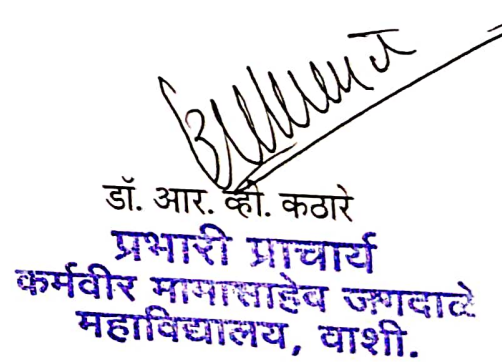 डॉ. आर. व्ही. कठारे
प्रभारी प्राचार्य
कर्मवीर मामासाहेब जगदाळे
महाविद्यालय, वाशी.